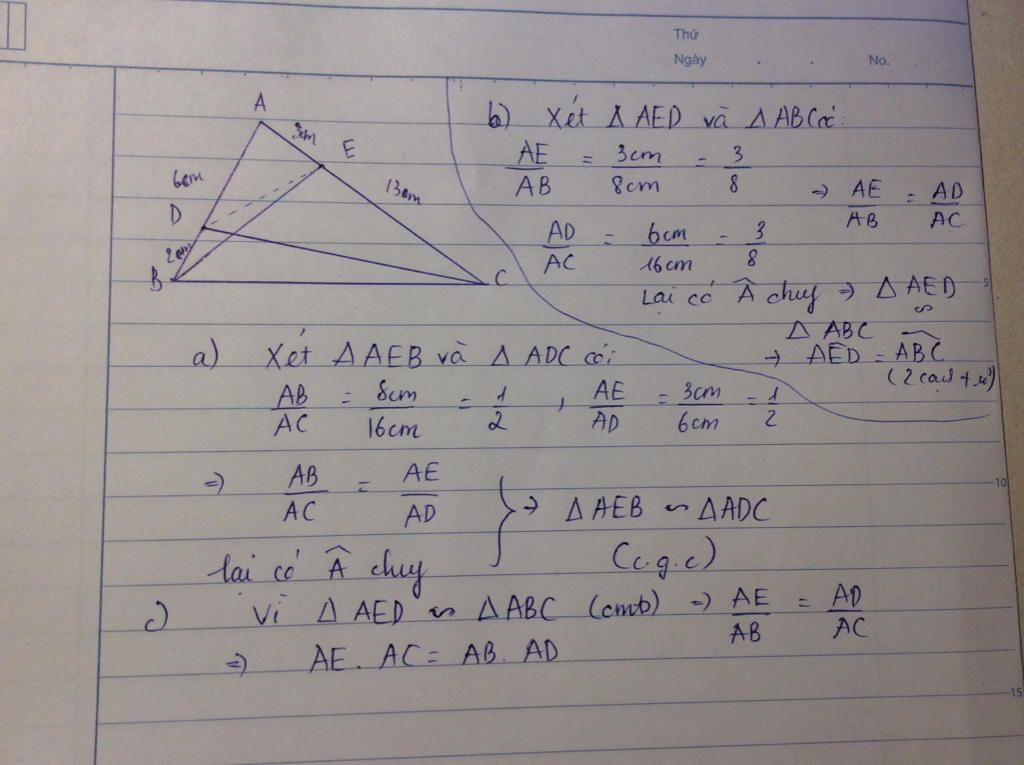 Thứ
Ngày . . No.
A
3cm
E
6cm
13cm
D
2cm
B
C
b) Xét Δ AED và Δ ABC có:
AE/AB = 3cm/8cm = 3/8
⇒ AE/AB = AD/AC
AD/AC = 6cm/16cm = 3/8
Lại có Â chuy ⇒ Δ AED
∽
Δ ABC
⇒ AED = ABC
a) Xét Δ AEB và Δ ADC có:
AB/AC = 8cm/16cm = 1/2 , AE/AD = 3cm/6cm = 1/2
⇒ AB/AC = AE/AD
} ⇒ Δ AEB ∽ Δ ADC
lại có Â chuy
(c.g.c)
c) Vì Δ AED ∽ Δ ABC (cmb) ⇒ AE/AB = AD/AC
⇒ AE. AC = AB. AD
5
10
15